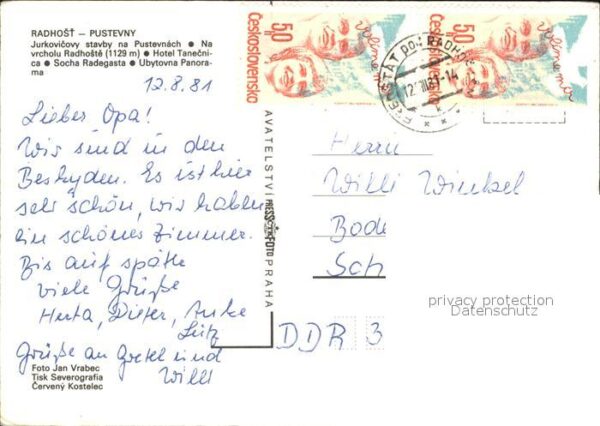 RADHOŠŤ — PUSTEVNY
Jurkovičovy stavby na Pustevnách ● Na
vrcholu Radhoště (1129 m) ● Hotel Tanečni-
ca ● Socha Radegasta ● Ubytovna Panora-
ma
12.8.81
Lieber Opa!
Wir sind in den
Beskyden. Es ist hier
sehr schön, wir haben
ein schönes Zimmer.
Bis auf später
viele Grüße
Herta, Dieter, Anke
Lutz
Grüße an Gretel und
Willi
Foto Jan Vrabec
Tisk Severografia
Červený Kostelec
VATELSTVÍ PRESSFOTO PRAHA
50
Československo
50
Československo
FRENŠTÁT POD RADHOŠTĚM
Herrn
Willi Winkel
Bode
Sch
DDR 3
privacy protection
Datenschutz